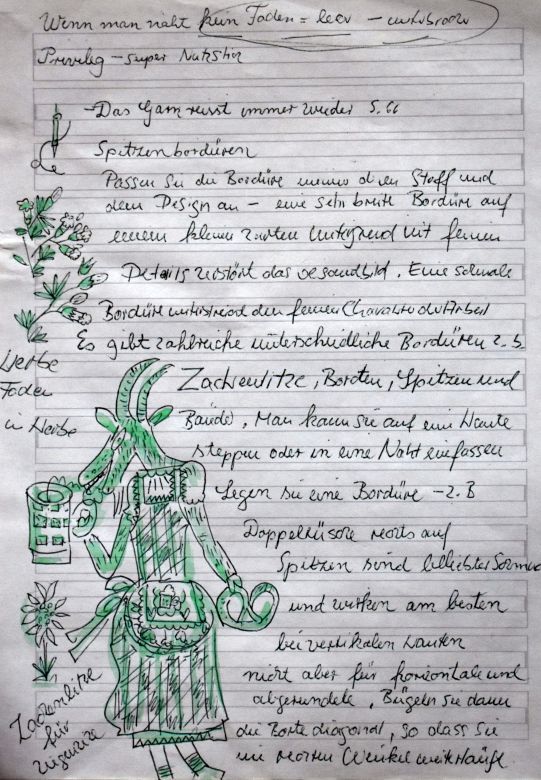 Wenn man näht kein Faden = leer –
Privileg – super Nutzstich
– Das Garn reisst immer wieder S. 66
Spitzenbordüren
Passen Sie die Bordüre immer dem Stoff und
dem Design an – eine sehr breite Bordüre auf
einem kleinen zarten mit feinen
Details zerstört das Gesamtbild. Eine schmale
Bordüre unterstreicht den feinen Charakter der Arbeit
Es gibt zahlreiche unterschiedliche Bordüren z. B.
Zackenlitze, Borten, Spitzen und
Bänder. Man kann sie auf eine Kante
steppen oder in eine Naht einfassen
Legen sie eine Bordüre – z. B
Doppelrüsche rechts auf
Spitzen sind beliebter Schmuck
und wirken am besten
bei vertikalen Kanten
nicht aber für horizontale und
abgerundete. Bügeln sie dann
die Borte diagonal, so dass sie
im rechten Winkel
Faden
in
Zackenlitze
für